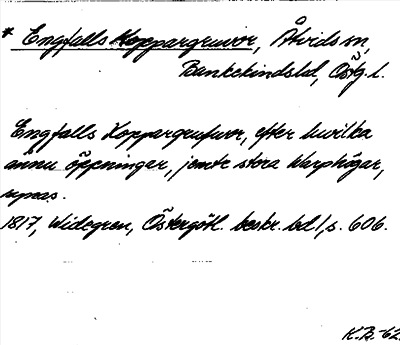 * Engfalls Koppargruvor, Åtvids sn,
Bankekinds hd, Östg. l.
Engfalls Koppargrufvor, efter hvilka
ännu öppningar, jemte stora Warphögar,
synas.
1817, Widegren, Östergötl. beskr. bd 1, s. 606.
K.B.-62.